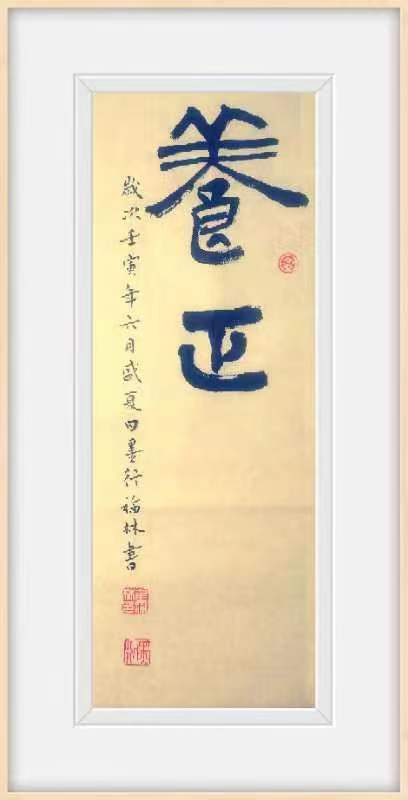 養正
歲次壬寅年六月盛夏田墨行福林書